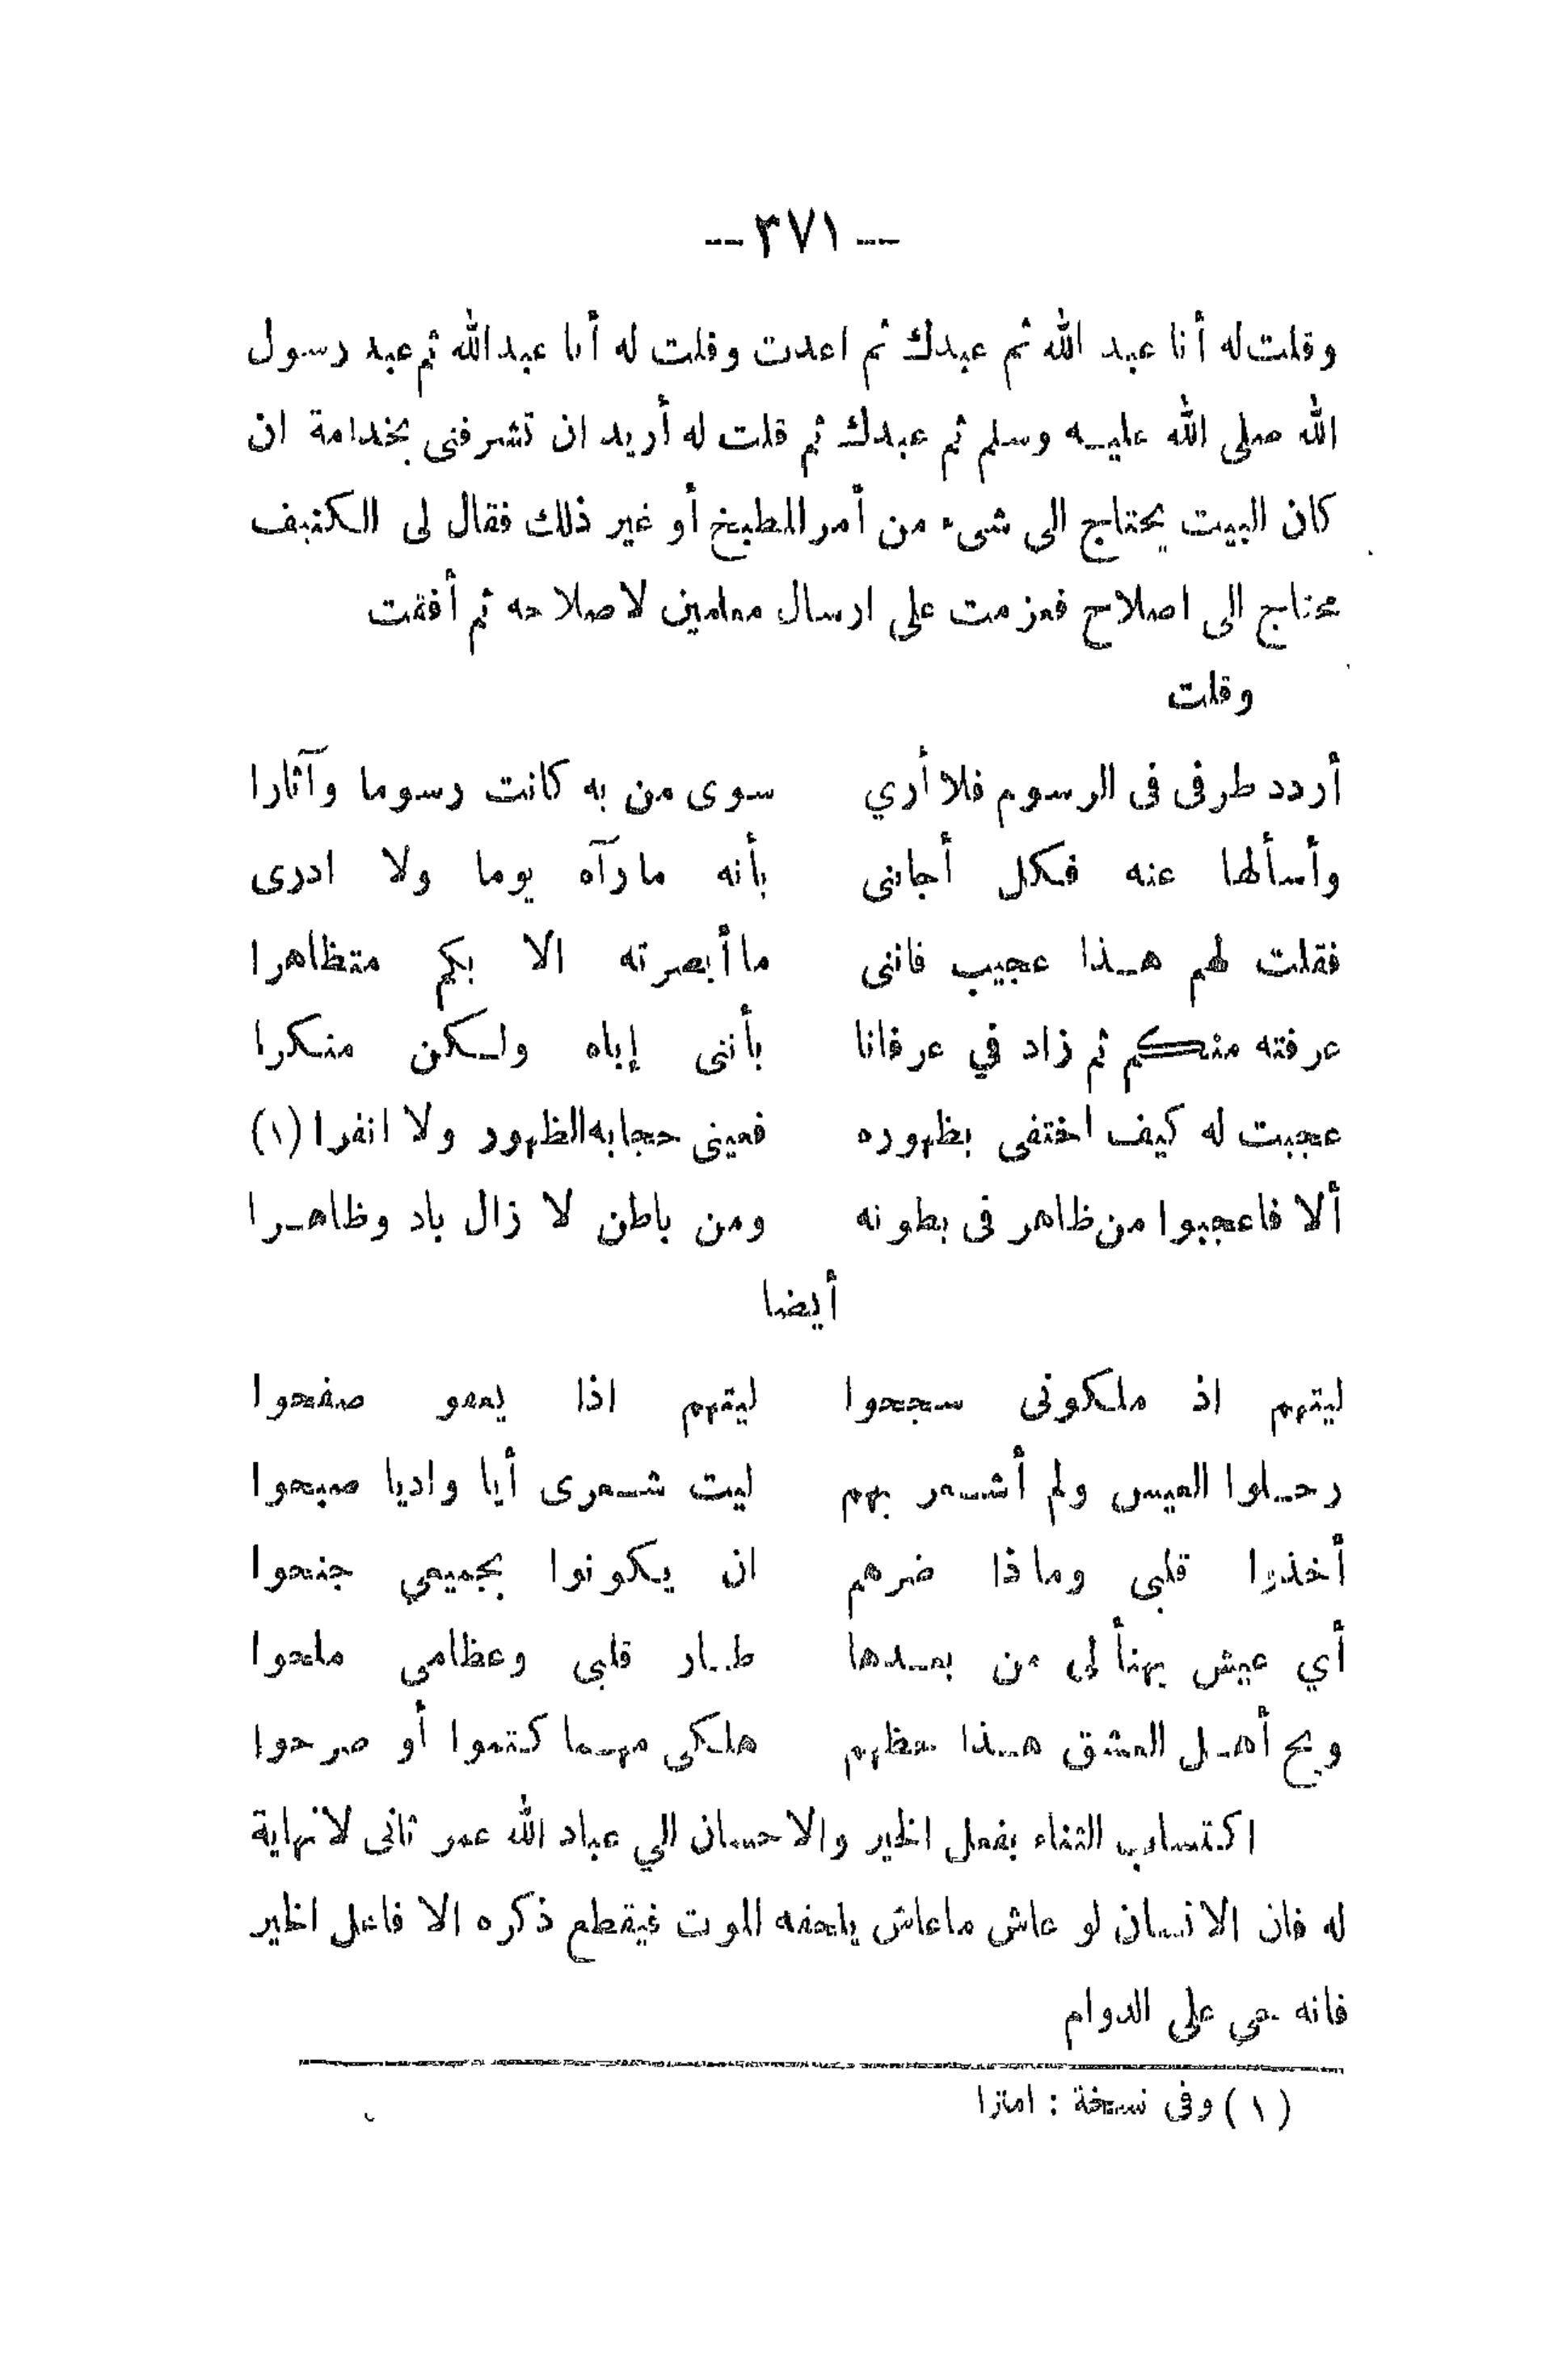 -- ٣٧١ --
وقلت له أنا عبد الله ثم عبدك ثم اعدت وقلت له أنا عبد الله ثم عبد رسول
الله صلى الله عليه وسلم ثم عبدك ثم قلت له أريد ان تشرفنى بخدامة ان
كان البيت يحتاج الى شىء من أمر المطبخ أو غير ذلك فقال لى الكنيف
محتاج الى اصلاح فعزمت على ارسال معلمين لاصلاحه ثم أفقت
وقلت
أردد طرفى فى الرسوم فلا أري سوى من به كانت رسوما وآثارا
وأسألها عنه فكل أجابنى بأنه مارآه يوما ولا ادرى
فقلت لهم هذا عجيب فاننى ماأبصرته الا بكم متظاهرا
عرفته منكم ثم زاد في عرفانا بأننى إياه ولكن منكرا
عجبت له كيف اختفى بظهوره فعينى حجابه الظهور ولا انفرا (١)
ألا فاعجبوا من ظاهر فى بطونه ومن باطن لا زال باد وظاهرا
أيضا
ليتهم اذ ملكونى سجحوا ليتهم اذا يعفو صفحوا
رحلوا العيس ولم أشعر بهم ليت شعرى أيا واديا صبحوا
أخذوا قلبى وماذا ضرهم ان يكونوا بجميعي جنحوا
أي عيش يهنأ لى من بعدها طار قلبى وعظامى ملحوا
ويح أهل العشق هذا حظهم هلكى مهما كتموا أو صرحوا
اكتساب الثناء بفعل الخير والاحسان الي عباد الله عمر ثانى لانهاية
له فان الانسان لو عاش ماعاش يلحقه الموت فيقطع ذكره الا فاعل الخير
فانه حي على الدوام
(١) وفى نسخة : امتازا